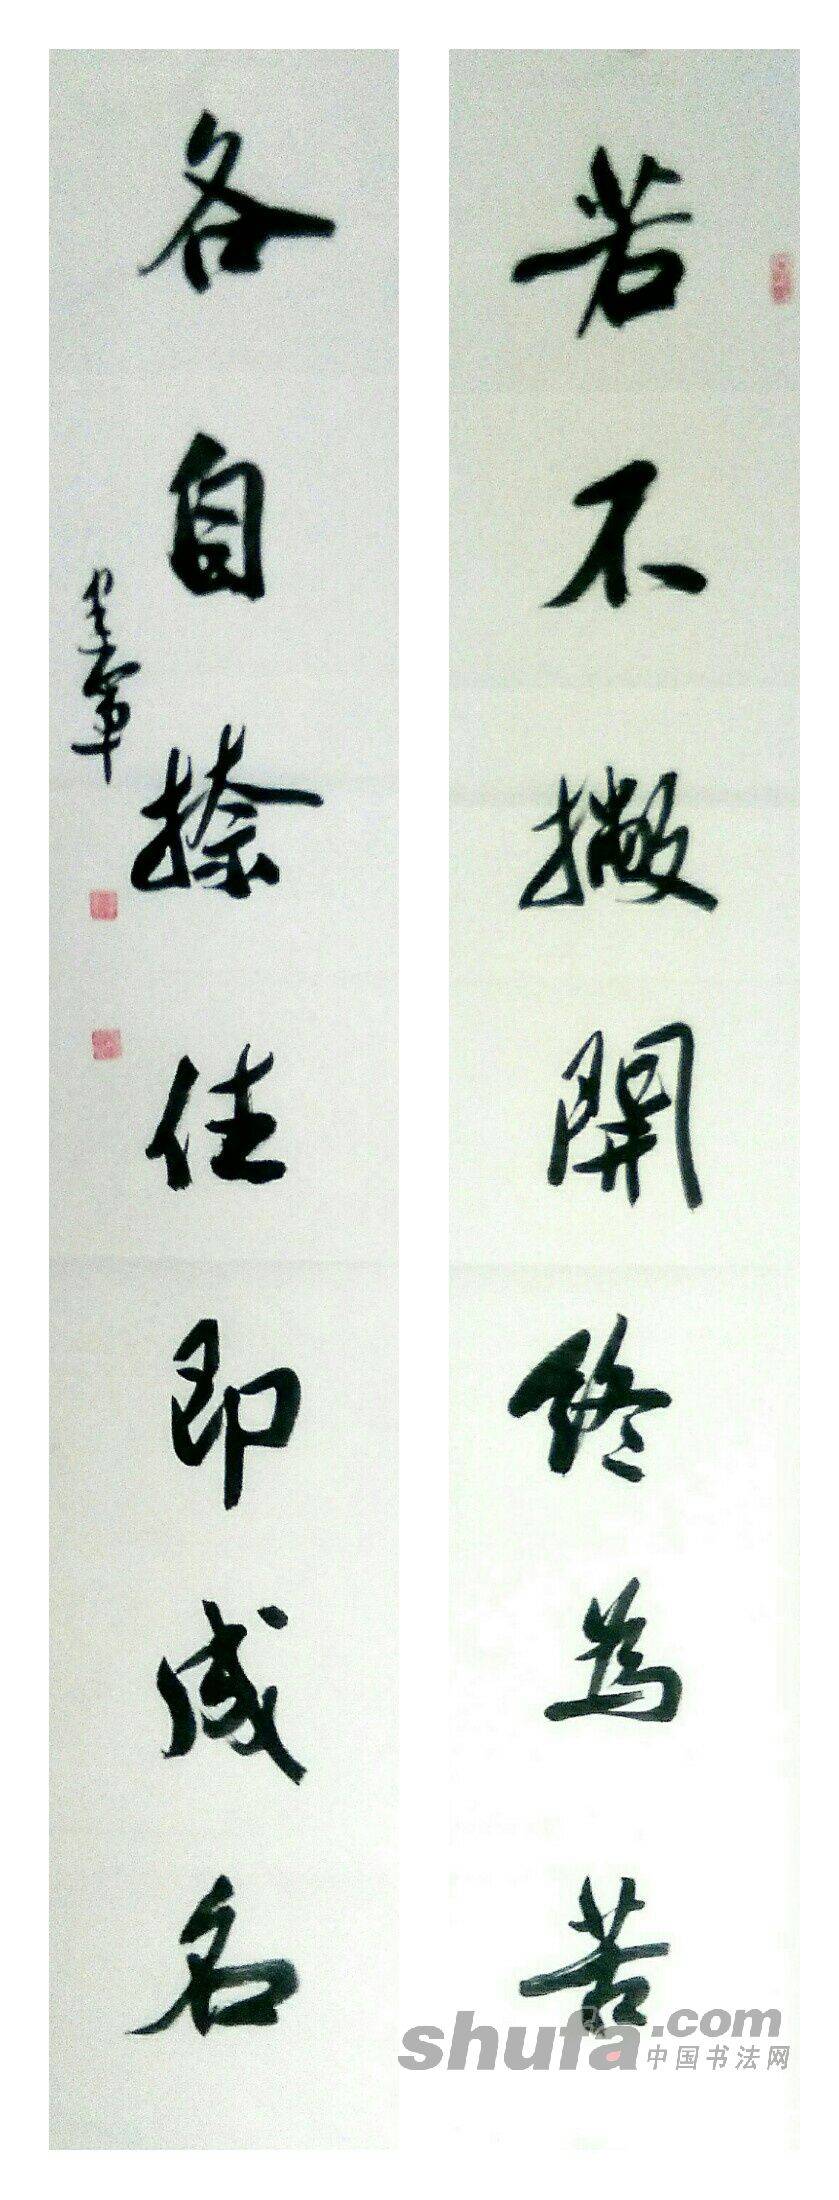 若不撇開終為苦
各自捺住即成名
shufa.com
中国书法网